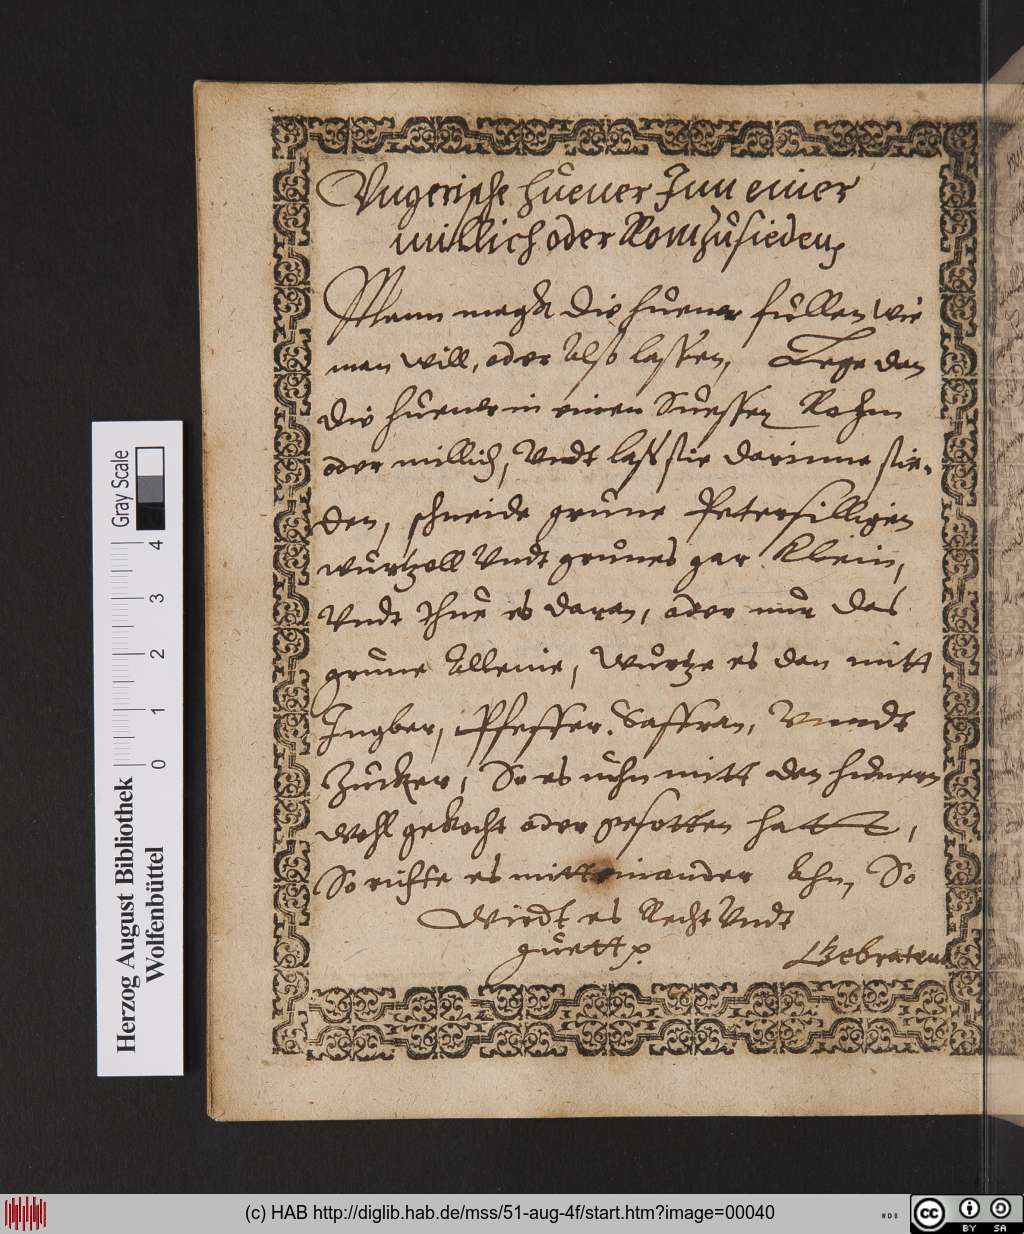 Vngerische hüener Inn einer
millich oder Rom zusieden,
Mann magk die hüener füllen wie
man will, oder Also lassen, Lege dan
die hüener in einen Süessen Rohm
oder millich, Vndt lass sie darinne sie-
den, schneide grüne Petersilligen
würtzell Vndt grünes gar klein,
Vndt thue es daran, oder nur das
grüne Alleine, Würtze es dan mitt
Ingber, Pfeffer, Saffran, Vnndt
Zücker, So es nuhn mitt den hünern
wohl gekocht oder gesotten hatt,
So richte es mitt einander Ahn, So
Wirdt es Recht Vndt
guett
Gebratene
Herzog August Bibliothek
Wolfenbüttel
0 1 2 3 4
Gray Scale
(c) HAB http://diglib.hab.de/mss/51-aug-4f/start.htm?image=00040
WDB
cc
BY SA